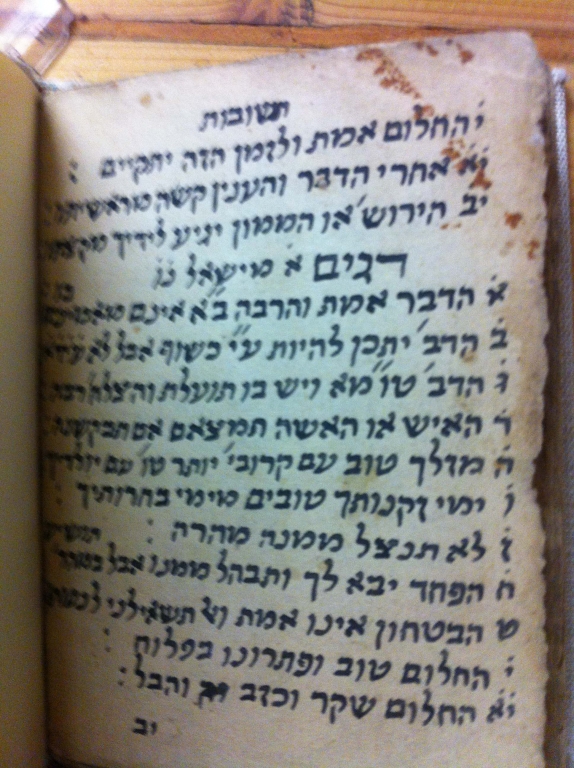 תשובות
י החלום אמת ולזמן הזה יתקיים :
יא אחרי הדבר והענין קשה מראשיתו :
יב הירוש' או הממון יגיע לידיך
דגים א מישאל
א הדבר אמת והרבה ב"א אינם
ב הדב' יתכן להיות ע"י כשוף אבל לא
ג הדב' טו"מא ויש בו תועלת והצלח' רבה
ד האיש או האשה תמצאם אם תבקשנה
ה מזלך טוב עם קרובי' יותר טו' עם
ו ימי זקנותך טובים מימי בחרותיך :
ז לא תנצל ממנה מהרה :
ח הפחד יבא לך ותבהל ממנו אבל
ט הבטחון אינו אמת ועל תשאילני
י החלום טוב ופתרונו בפלוח :
יא החלום שקר וכזב והבל :
יב